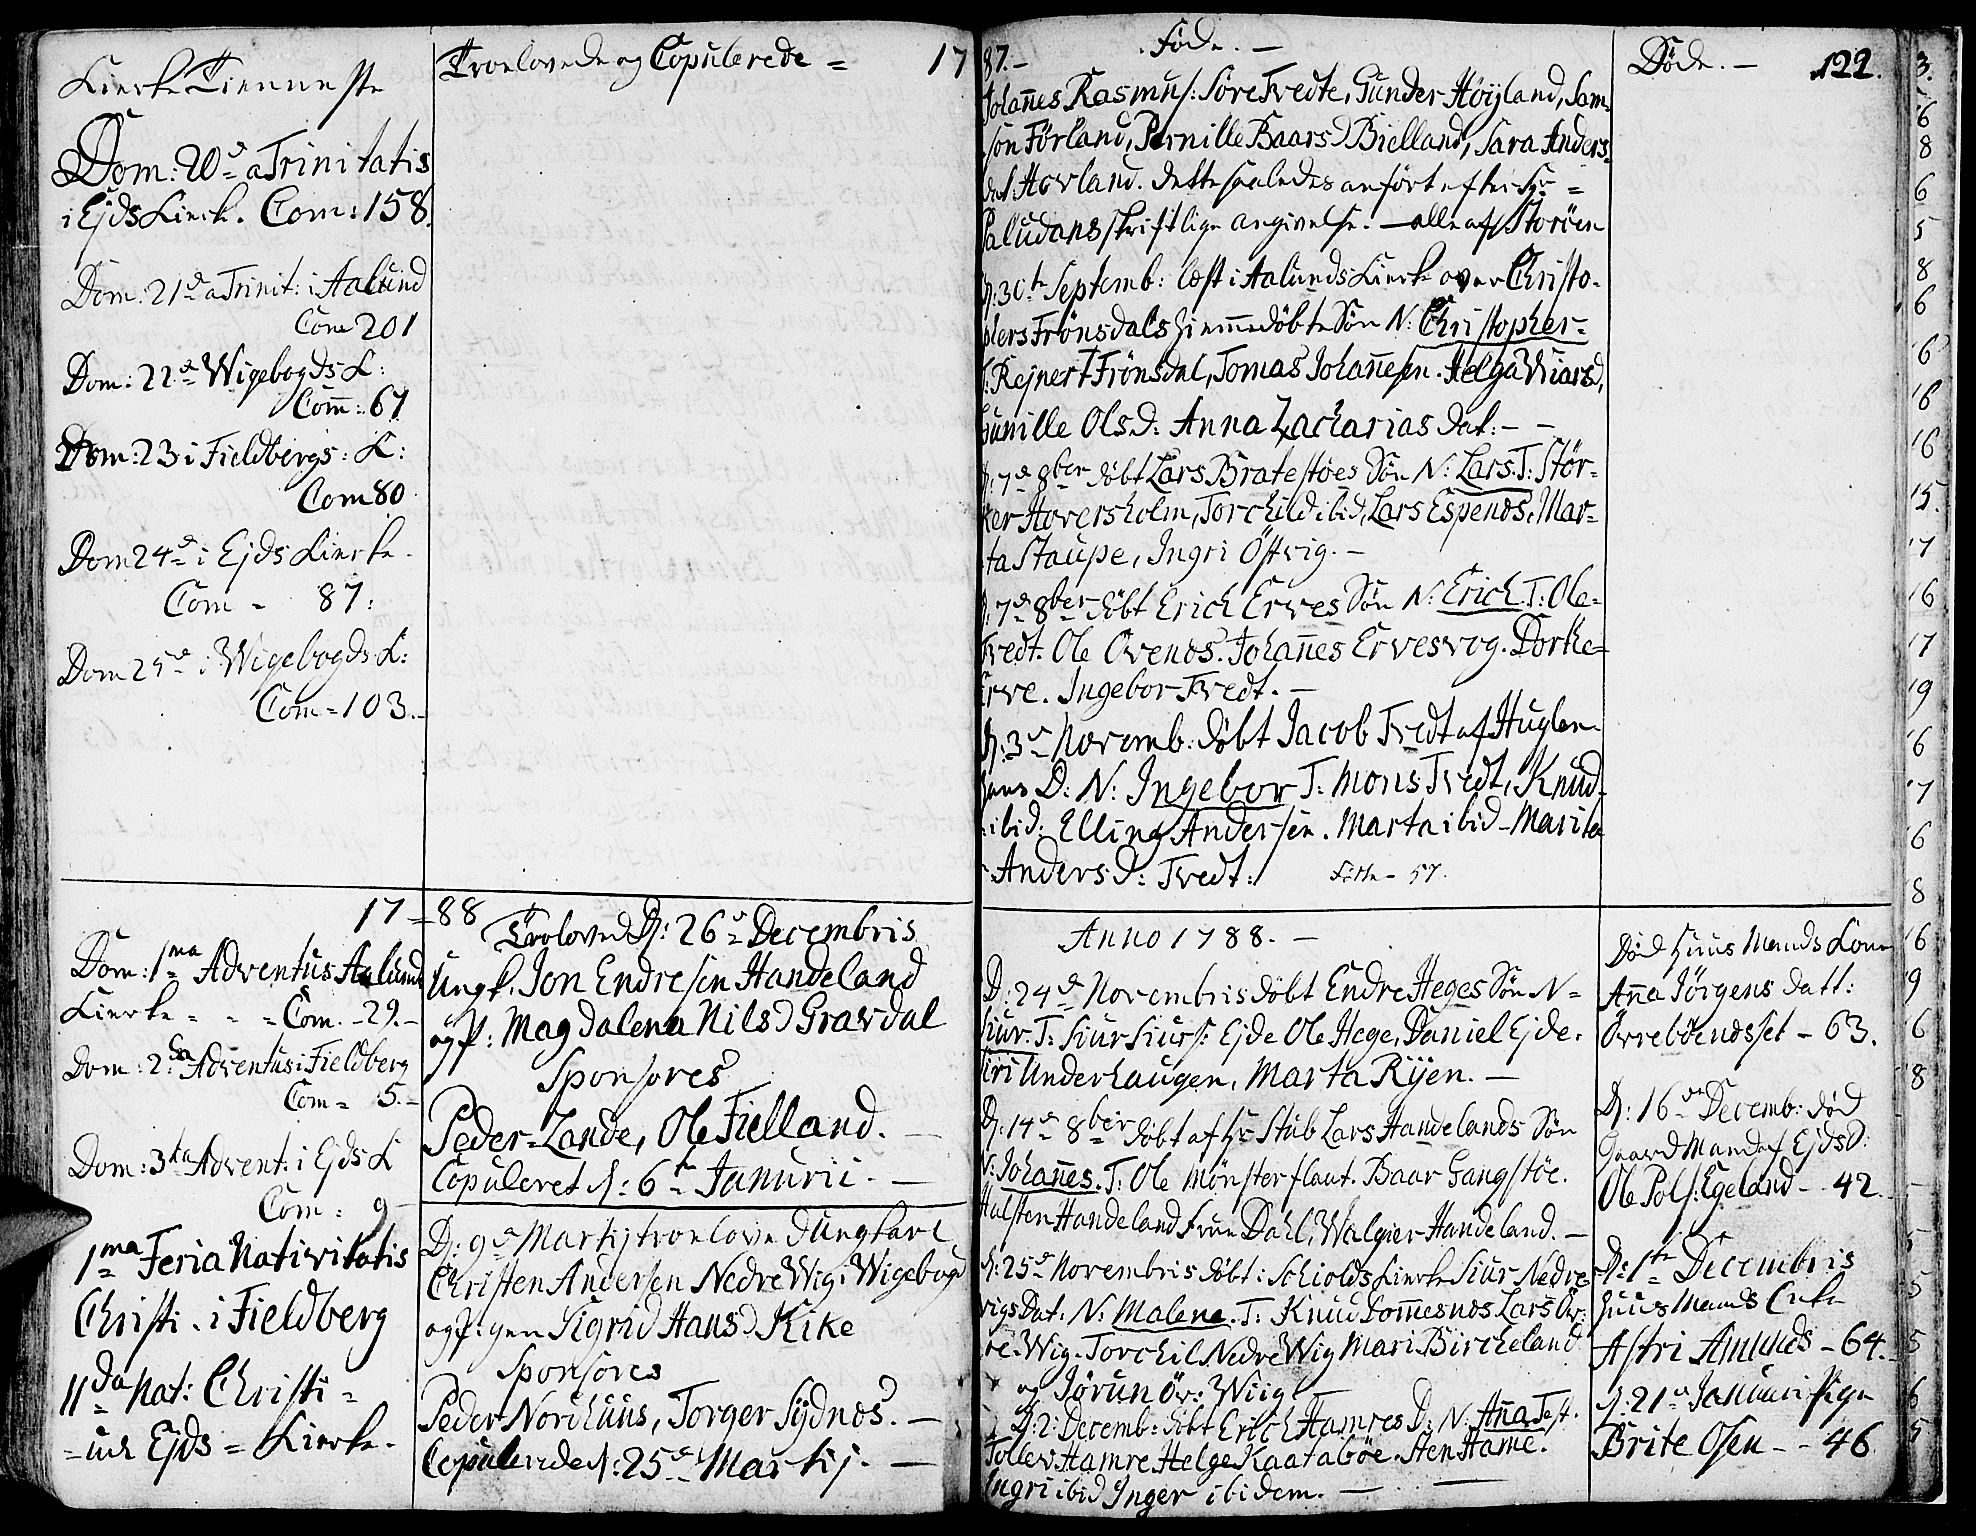 Kierke Tienneste
Dom: 20de a Trinitatis
i Ejds Kierk. Com: 158.
Dom: 21de a Trinit: i Aalund
Com 201
Dom: 22de Wigebogds K:
Com: 67
Dom: 23 i Fieldbergs: K:
Com 80
Dom 24de i Ejds Kierke.
Com - 87:
Dom 25de i Wigebogds K:
Com = 103.-
Troelovede og Copulerede = 17
87.-
Føde. -
Johannes Rasmus: Søre Tvedte, Gunder Höyland, Sam-
son Förland, Pernille Baars D Bielland, Sara Anders-
dat Hovland. dette saaledes anført efter Hr =
Paludans skriftlige angivelse. - alle af Storöen
D: 30te Septemb: læst i Aalunds Kierke over Christo-
phers Frönsdals hiemmedöbte Sön N: Christopher-
T: Rejnert Frönsdal, Tomas Johannesen. Helga Wiarsd,
Gunille Olsd: Anna Zacharias dat: - -
D: 7de 8ber döbt Lars Bratestöes Sön N: Lars. T: Stör-
ker Hovershlm, Torchild ibid, Lars Espends, Mar-
ta Staupe, Ingri Östvig. -
D: 7de 8ber döbt Erich Erves Sön N: Erich. T: Ole-
Tvedt. Ole Ovenos. Johannes Ervesvog. Dorthe-
Erve. Ingebor Tvedt. -
D: 3de Novemb: döbt Jacob Tvedt af Huglen
hans D: N: Ingebor T: Mons Tvedt, Knud-
ibid: Elling Andersen. Marta ibid - Marita
Anders D: Tvedt.
57.
Døde. -
122.
17=88
Dom: 1ma Adventus Aalund
Kierke - - - Com. - 29.-
Dom: 2da Adventus i Fieldberg
Com = 5.-
Dom: 3tia Advent: i Ejds K
Com = 9
1ma Feria Nativitatis
Christi. i Fieldberg
11da Nat: Christi =
- ud Ejds = Kierke.
Troloved D: 26de Decembris
Ungk. Jon Endresen Handeland
og P: Magdalena Nils D Gravdal
Sponsores
Peder Lande, Ole Fielland. -
Copuleret d: 6te Januarii. -
D: 9de Martij troeloved Ungkarl
Christen Andersen Nedre Wig i Wigebogd
og P: gen Sigrid Hans D Kike
Sponsores
Peder Nordhuus, Torger Sydnes. -
Copulerede d: 25de Martij. -
Anno 1788. -
D: 24de Novembris döbt Endre Heges Sön N =
Siur. T: Siur Siurs: Ejde Ole Hege, Daniel Ejde.
Siri Underhaugen, Marta Rijen. -
D: 14de 8ber döbt af Hr Stub Lars Handelands Sön
N: Johannes. T: Ole Mönster flaat. Baar Gangstöe.
Halsten Handeland Frue Dahl, Walgier Handeland. -
D: 25de Novembris döbt i Schiolds Kierke Siur Nedre
vigs Dat. N: Malene. T: Knud Lommesnos Lars Öv-
re-Wig. Torchil Nedre Wig Mari Bircheland
og Jörun Öv: Wiig
D: 2: Decemb: döbt Erich Hamres D: N: Ana Test.
Tollev Hamre Helge Kaatabøe Sten Hame.
Ingri ibid Inger ibidem. -
Död Huus Mands Kone
Anna Jörgens Datt:
Örreböendsset - 63.
D: 16de Decemb: död
Gaard Mand af Ejds S:
Ole Pols: Egeland - 42.
D: 1te Decembris
Huus Mands Enke
Astri Amunds - 64.-
d: 21de Januari Pige
Brite Osen - - 46
3.
6
8
6
5
8
6
6
6
16
15.
7
16
17
9
6
7
6
8
6
9
6
8
5
5
5
6
5